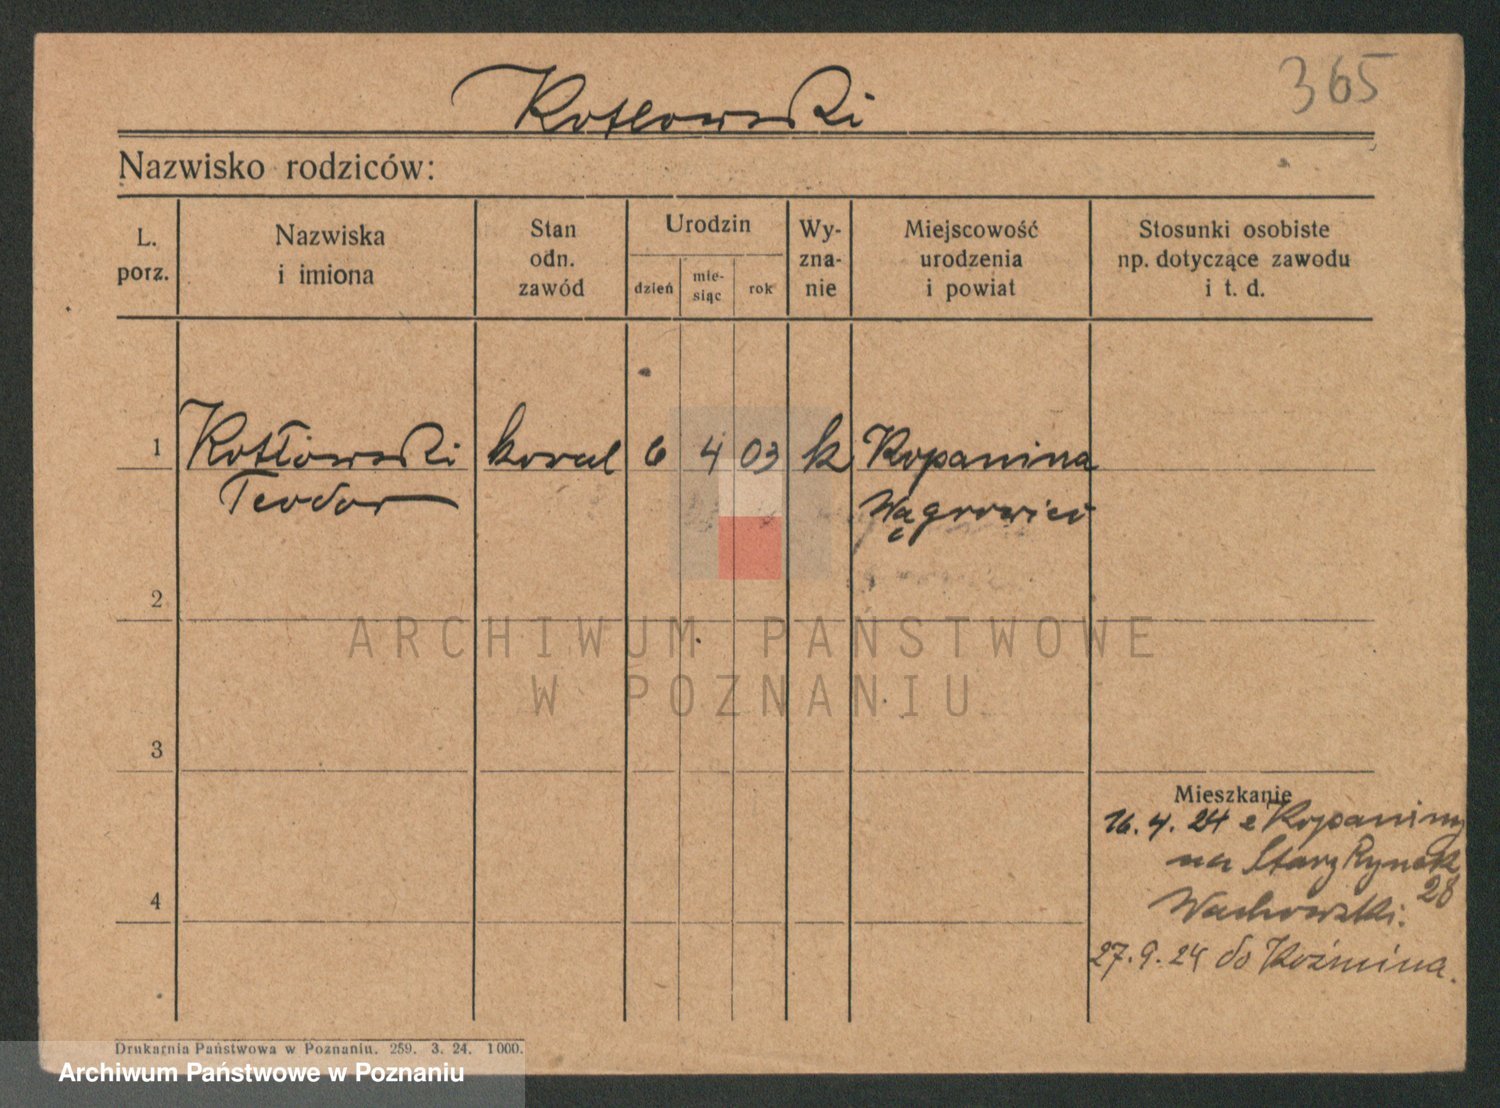 365
Kotlowski
Nazwisko rodziców:
L. porz.
Nazwiska i imiona
Stan odn. zawód
Urodzin
dzień
mie-siąc
rok
Wy-zna-nie
Miejscowość urodzenia i powiat
Stosunki osobiste np. dotyczące zawodu i t. d.
1 Kotłowski koval 6 4 03 k Kopanina
Teodor Wągrowiec
2
ARCHIWUM PAŃSTWOWE
W POZNANIU
3
Mieszkanie
16. 4. 24 z Kopaniny
na Stary Rynek
28
4
Wachowski.
27. 9. 24 do Koźmina.
Drukarnia Państwowa w Poznaniu. 259. 3. 24. 1000.
Archiwum Państwowe w Poznaniu